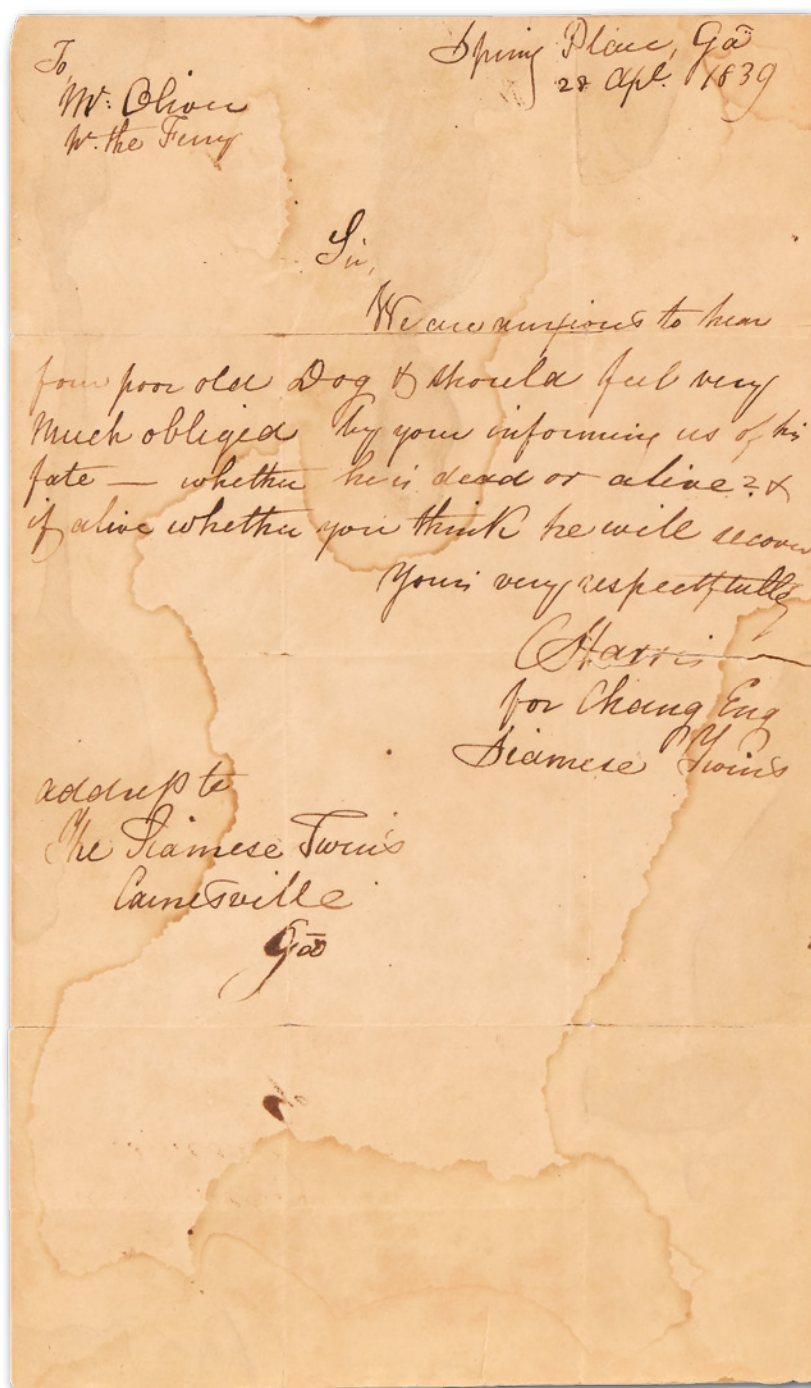 To,
Mr. Oliver
at the Ferry
Spring Place, Ga
28 Apl. 1839
Sir,
We are anxious to hear
from poor old Dog & should feel very
much obliged by your informing us of his
fate — whether he is dead or alive? &
if alive whether you think he will recover
Yours very respectfully
C Harris
for Chang Eng
Siamese Twins
address to
The Siamese Twins
Gainesville
Ga